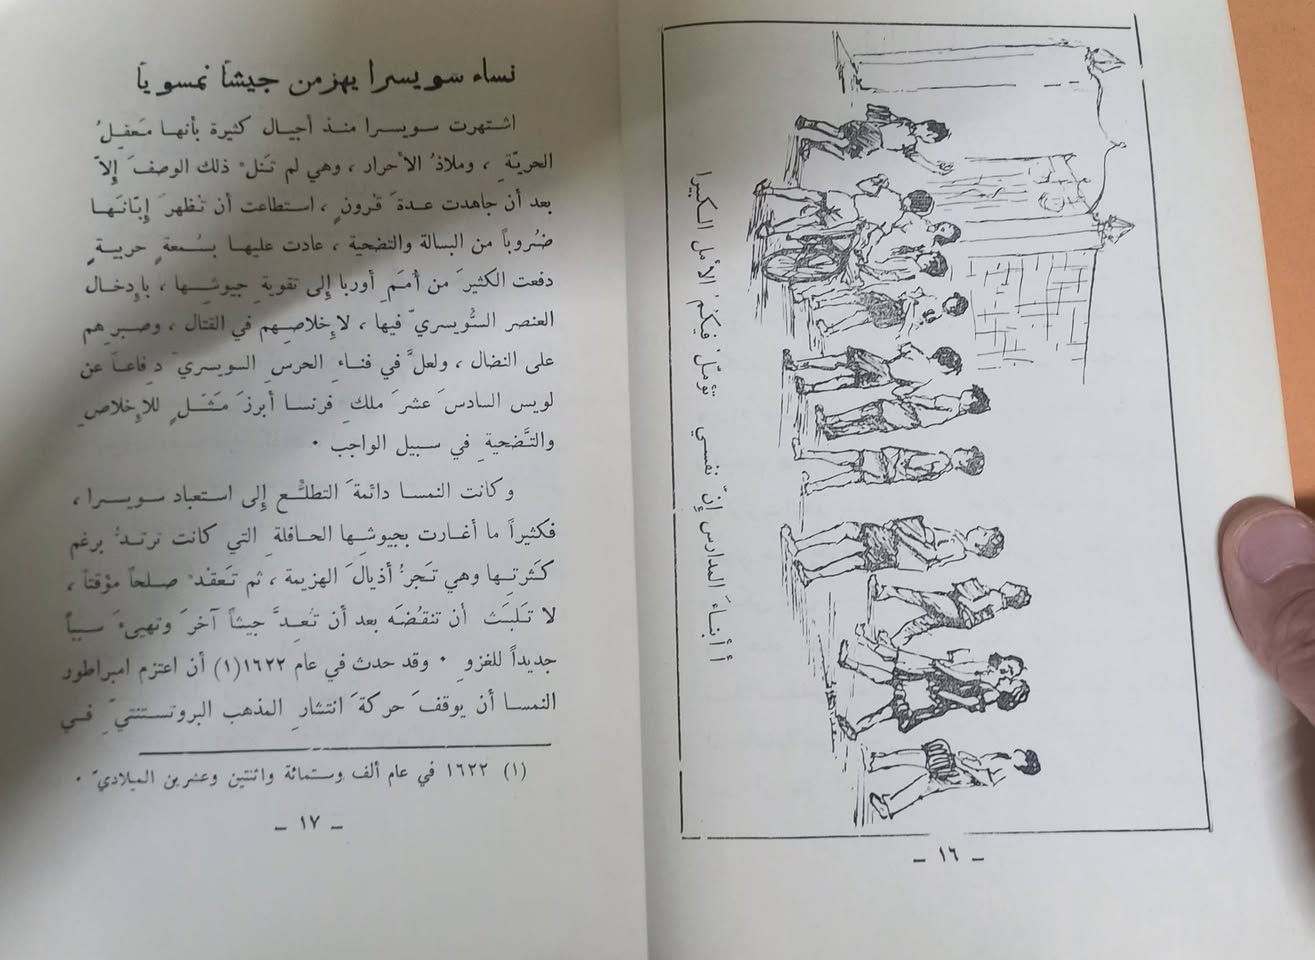 أ أبناءَ المدارس إنّ نفسي تؤمّل فيكمُ الأمل الكبيرا
– ١٦ –
نساء سويسرا يهزمن جيشاً نمسوياً
اشتهرت سويسرا منذ أجيال كثيرة بأنها مَعقِلُ
الحريّةِ ، وملاذُ الأحرار ، وهي لم تَنلْ ذلك الوصفَ إِلاّ
بعد أن جاهدت عدةَ قرونٍ ، استطاعت أن تُظهرَ إِبّانَها
ضُروباً من البسالة والتضحية ، عادت عليها بسُمعةٍ حربيةٍ
دفعت الكثيرَ من أُممِ أوربا إِلى تقويةِ جيوشِها ، بإِدخال
العنصر السُّويسريّ فيها ، لإِخلاصِهم في القتال ، وصبرِهم
على النضال ، ولعلَّ في فناءِ الحرسِ السويسريّ دِفاعاً عن
لويس السادسَ عشرَ ملكِ فرنسا أبرزَ مَثَلٍ للإِخلاصِ
والتَّضحيةِ في سبيل الواجب ·
وكانت النمسا دائمةَ التطلُّع إِلى استعباد سويسرا ،
فكثيراً ما أغارت بجيوشِها الحافلةِ التي كانت ترتدُّ برغم
كَثرتِها وهي تَجرُّ أذيالَ الهزيمة ، ثم تَعقدُ صلحاً مؤقتاً ،
لا تَلبَثُ أن تنقُضَه بعد أن تُعِدَّ جيشاً آخرَ وتهيىءَ سَبباً
جديداً للغزوِ · وقد حدث في عام ١٦٢٢(١) أن اعتزم امبراطور
النمسا أن يوقفَ حركةَ انتشارِ المذهب البروتستنتيِّ في
(١) ١٦٢٢ في عام ألف وستمائة واثنتين وعشرين الميلاديّ ·
– ١٧ –